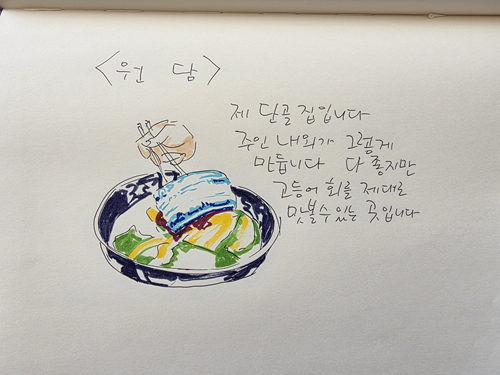 <우건 담>
제 단골 집입니다
주인 내외가 그렇게
만듭니다 다 좋지만
고등어 회를 제대로
맛볼수 있는 곳입니다